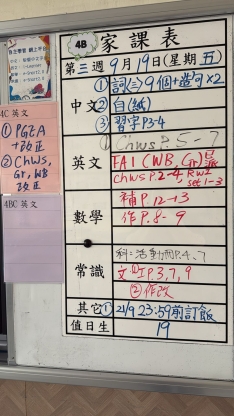 4B 家課表
第三週9月19日(星期五)
中文 ①詞(三)9個+造句x2
②白(紙)
③習字P3-4
英文 ①Chws P.5-7
FA1 (WB, Gr)
Chws P.2-4, RW2 set 1-3
數學 補P.12→13
作P.8-9
常識 科:活動冊P.4、7
P.3,7,9
②作改
其它 ①21/9 23:59前訂飯
值日生 19
4C 英文
①PGEA
+改正
②Chws,
Gr, WB
改正
4BC 英文